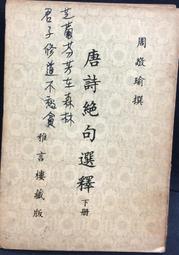 周敬瑜撰
唐詩絕句選釋 下冊
雅言樓藏版
芝蘭芬芳在森林
君子修道不愁貧